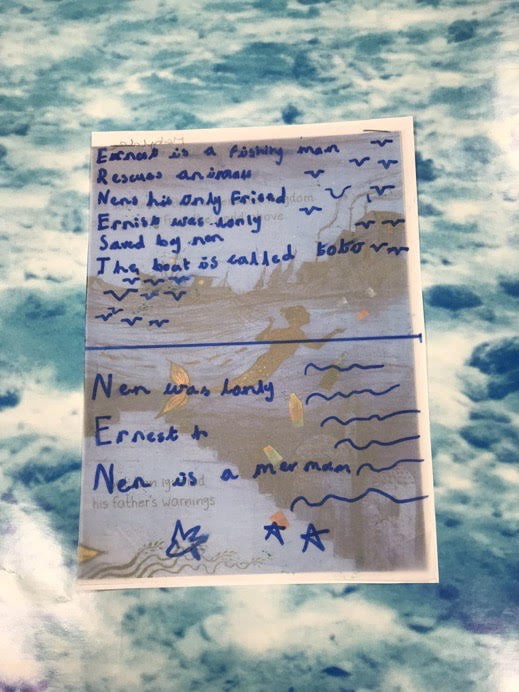 Ernest is a fishing man
Rescues animals
Nens his only Friend
Ernist was lonly
Saved by nen
The boat is called bobo
Nen was lonly
Ernest
Nen is a mer man
his father's warnings